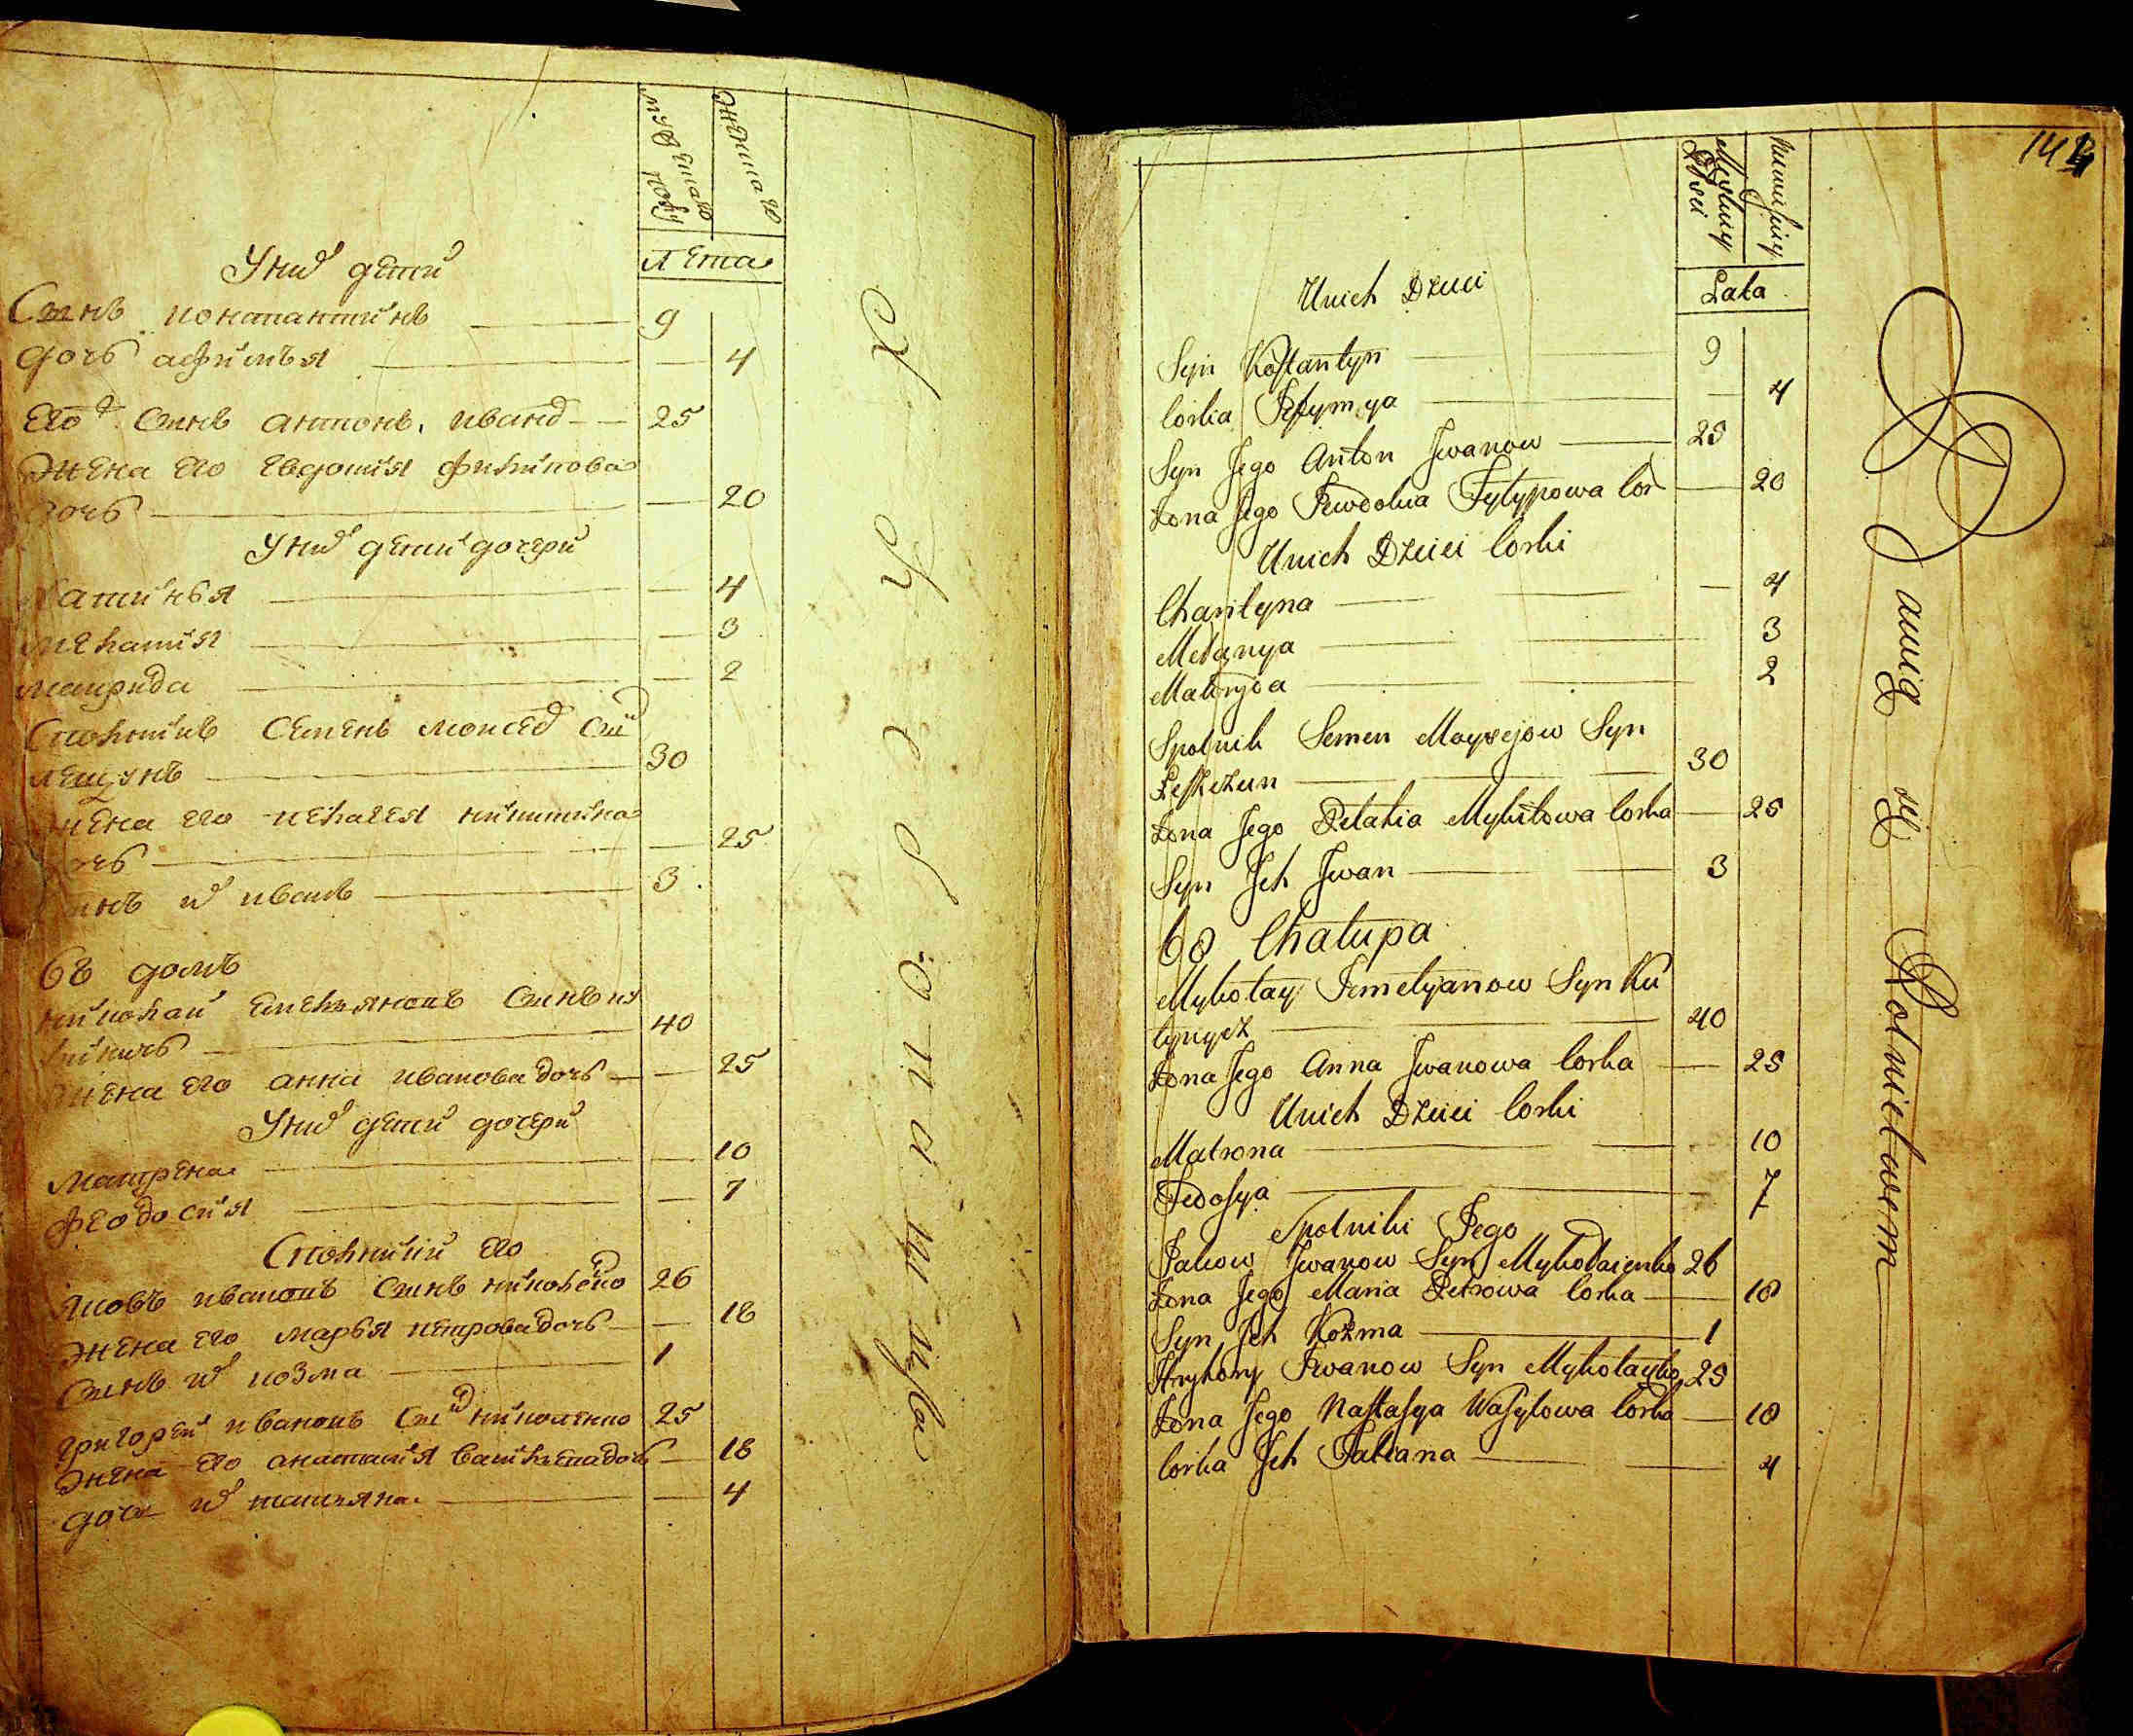 мужеска
полу
женска
лета
У них дети
Сынъ констант͏инъ 9
дочь афимья 4
Его сынъ антонъ иванов 25
Жена его евдокия филипова
дочь 20
У них дети дочери
мелания 3
матрида 2
Спольникъ Семенъ моисеев сын
лещунъ 30
жена его пелагея никитина
дочь 25
Сынъ их иванъ 3
68 домъ
николай емельяновъ сынъ ку
40
жена его анна иванова дочь 25
У них дети дочери
матрена 10
феодосия 7
Спольники его
Яковъ ивановъ сынъ 26
жена его марья петрова дочь 18
Сынъ их козма 1
григорей ивановъ сын 25
жена его анастасия дочь 18
дочь их татьяна 4
144
Męskiey
Płci
Lata
Unich Dzieci
Syn Kostantyn 9
Corka Jefymya 4
Syn Jego Anton Jwanow 25
Żona Jego Jewdokia Fylypowa Cor 20
Unich Dzieci Corki
Charytyna 4
Melanya 3
Matryda 2
Spolnik Semen Moysejow Syn
Leszczun 30
Żona Jego Pelahia Mykitowa Corka 25
Syn Jch Jwan 3
68 Chałupa
Mykołay Jemelyanow Syn Ku
lynycz 40
Żona Jego Anna Jwanowa Corka 25
Unich Dzieci Corki
Matrona 10
Fedosya 7
Spolniki Jego
Jakow Jwanow Syn Mykołaienko 26
Żona Jego Maria Petrowa Corka 18
Syn Jch Kozma 1
Hryhory Jwanow Syn 25
Żona Jego Nastasya Wasylowa Corka 18
Corka Jch Tatiana 4